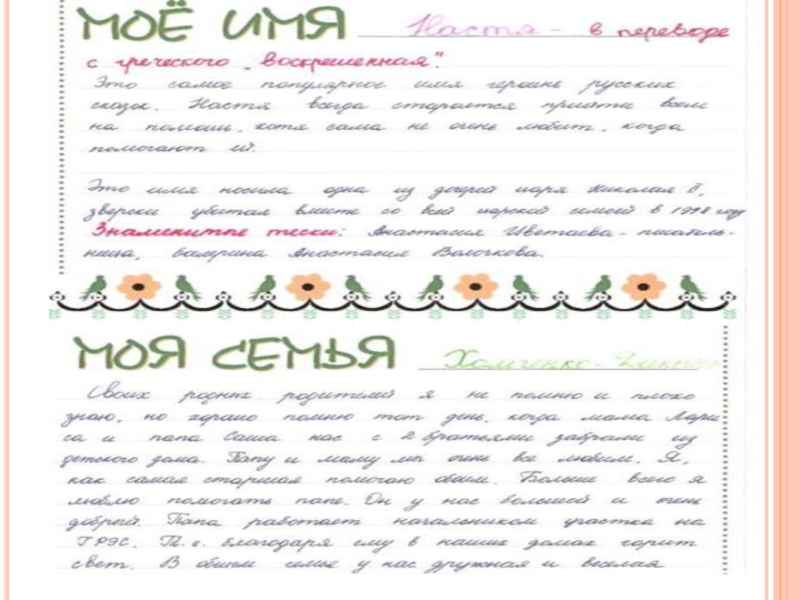 МОЁ ИМЯ Настя - в переводе
с греческого „воскрешенная".
Это самое популярное имя героинь русских
сказок. Настя всегда старается прийти всем
на помощь, хотя сама не очень любит, когда
помогают ей.
Это имя носила одна из дочерей царя Николая II,
зверски убитая вместе со всей царской семьей в 1918 году
Знаменитые тески: Анастасия Цветаева - писатель-
ница, балерина Анастасия Волочкова.
МОЯ СЕМЬЯ Хомченко -
Своих родных родителей я не помню и плохо
знаю, но хорошо помню тот день, когда мама Лари
са и папа Саша нас с 2 братьями забрали из
детского дома. Папу и маму мы очень все любим. Я,
как самая старшая помогаю обоим. Больше всего я
люблю помогать папе. Он у нас большой и очень
добрый. Папа работает начальником участка на
ГРЭС. Т.е. благодаря ему в наших домах горит
свет. В общем семье у нас дружная и веселая